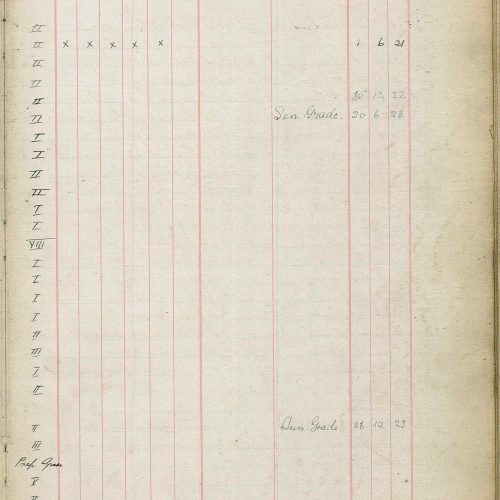 II
II x x x x x 1 6 21
II
II
II 15 12 22
II Sen. Grade. 20 6 28
I
I
II
II
I
I
VIII
I
I
I
I
II
III
I
II
II Jun. Grade. 26 10 23
III
Prep Grade
V
II